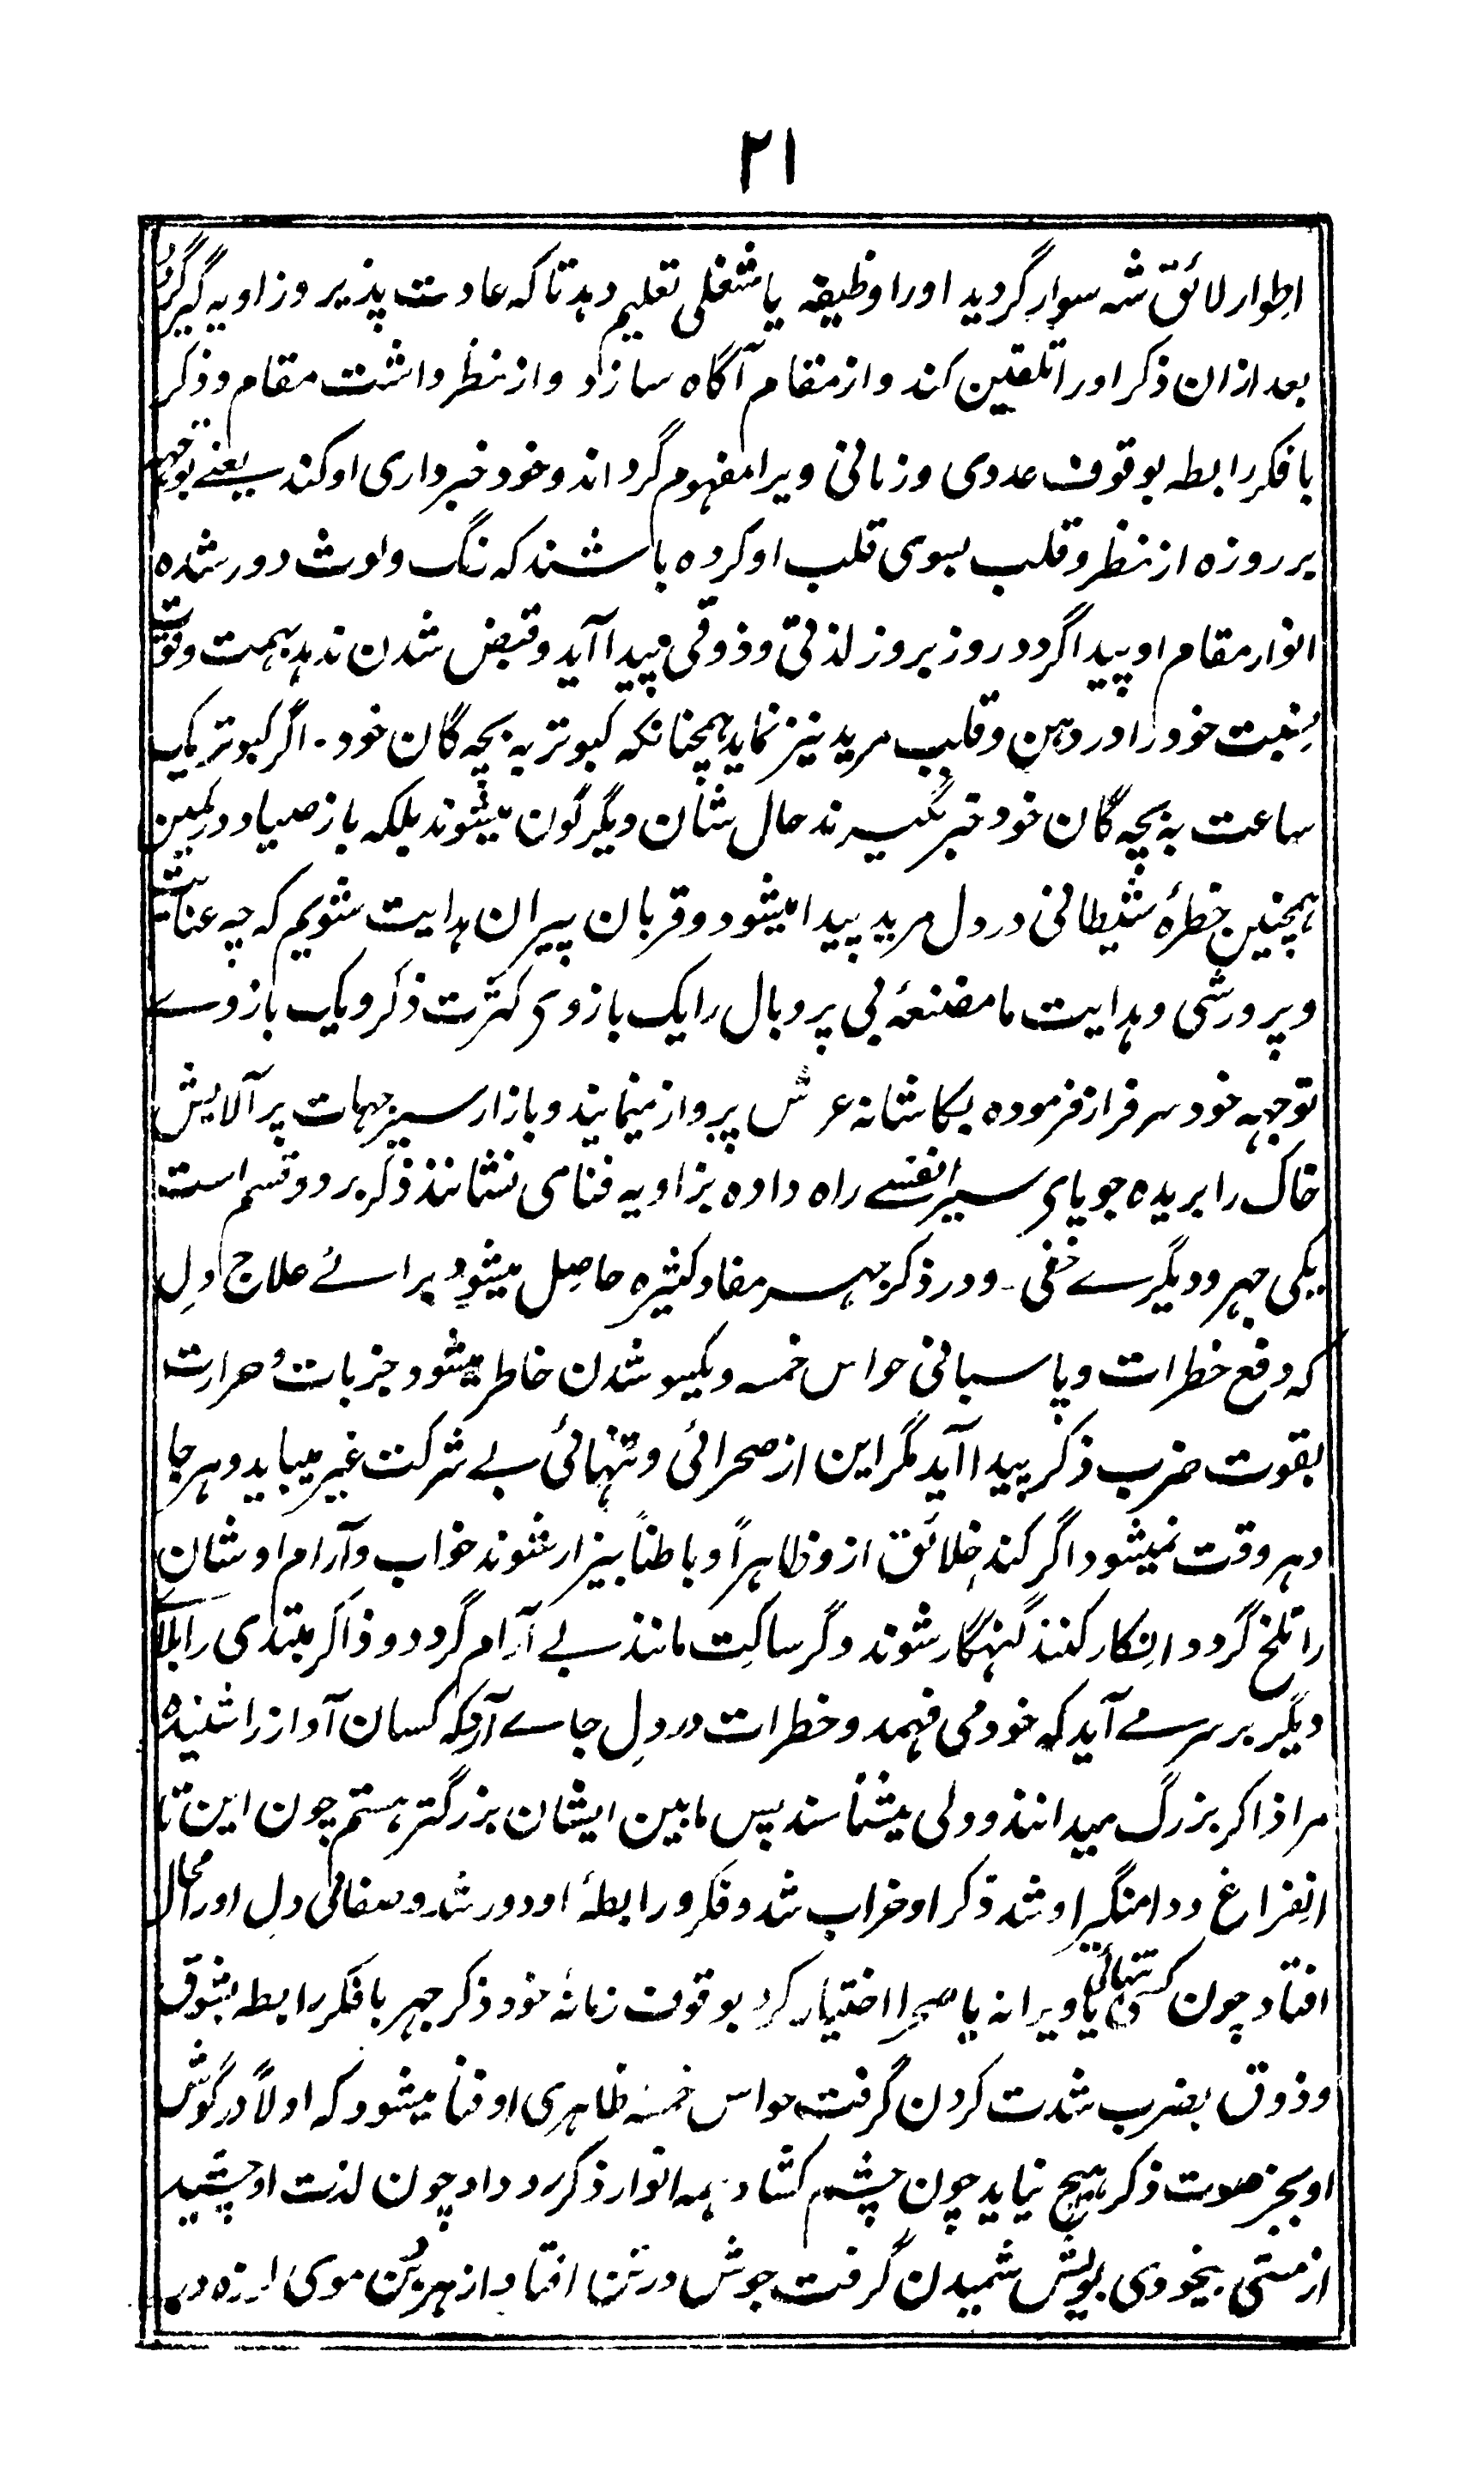 ۲۱
اطوار لائق شہ سوار گردید او را وظیفہ یا شغلی تعلیم دہد تا کہ عادت پذیر و زاویہ گیر گردد
بعد ازان ذکر او را تلقین کند و از مقام آگاہ سازد و از نظر داشت مقام و ذکر
با فکر رابطہ بوقوف عددی و زمانی ویرا مفہوم گرداند و خود خبرداری او کند یعنے توجہ
ہر روزہ از نظر و قلب بسوی قلب او کردہ باشند کہ زنگ و لوث دور شدہ
انوار مقام او پیدا گردد روز بروز لذتی و ذوقی پیدا آید و قبض شدن ندہد بہمت و قوت
نسبت خود را در ذہن و قلب مرید نیز نماید ہمچنانکہ کبوتر بہ بچہ گان خود۔ اگر کبوتر یک
ساعت بہ بچہ گان خود خبر نگیرند حال شان دیگرگون میشوند بلکہ باز صیاد در کمین
ہمچنین خطرۂ شیطانی در دل مرید پیدا میشود و قربان پیران ہدایت شویم کہ چہ عنایت
و پرورشی و ہدایت ما مضغۂ بی پر و بال را یک بازوی کثرت ذکر و یک بازوے
توجہہ خود سرفراز فرمودہ بکاشانہ عرش پرواز مینمایند و بازار سیر جہات پر آلایش
خاک را بریدہ جویای سیر انفسے راہ دادہ بزاویہ فنا می نشانند ذکر بر دو قسم است
یکی جہر و دیگرے خفی۔ و در ذکر جہر مفاد کثیرہ حاصل میشود براے علاج دل
کہ دفع خطرات و پاسبانی حواس خمسہ و یکسو شدن خاطر میشود جزبات و حرارت
بقوت ضرب ذکر پیدا آید مگر این از صحرائی و تنہائی بے شرکت غیر میباید و ہر جا
و ہر وقت نمیشود اگر کند خلائق ازو ظاہراً و باطناً بیزار شوند خواب و آرام اوشان
را تلخ گردد انکار کنند گنہگار شوند و گر ساکت مانند بے آرام گردد و ذاکر مبتدی را بلاے
دیگر بر سر مے آید کہ خود می فہمد و خطرات در دل جاے آرد کہ کسان آواز را شنیدہ
مرا ذاکر بزرگ میدانند و ولی میشناسند پس مابین ایشان بزرگتر ہستم چون این تا
انفراغ د دامنگیر او شد ذکر او خراب شد و فکر و رابطۂ او دور شد و صفائی دل او را محال
افتاد چون کسی تنہائی یا ویرانہ یا صحرا اختیار کرد بوقوف زمانۂ خود ذکر جہر با فکر رابطہ بشوق
و ذوق بضرب شدت کردن گرفت حواس خمسہ ظاہری او فنا میشود کہ اولاً در گوش
او بجز صوت ذکر ہیچ نیاید چون چشم کشاد ہمہ انوار ذکر رو داد چون لذت او چشید
از مستی بیخودی بویش شمیدن گرفت جوش در تن افتاد از ہر بُن موی لرزہ در